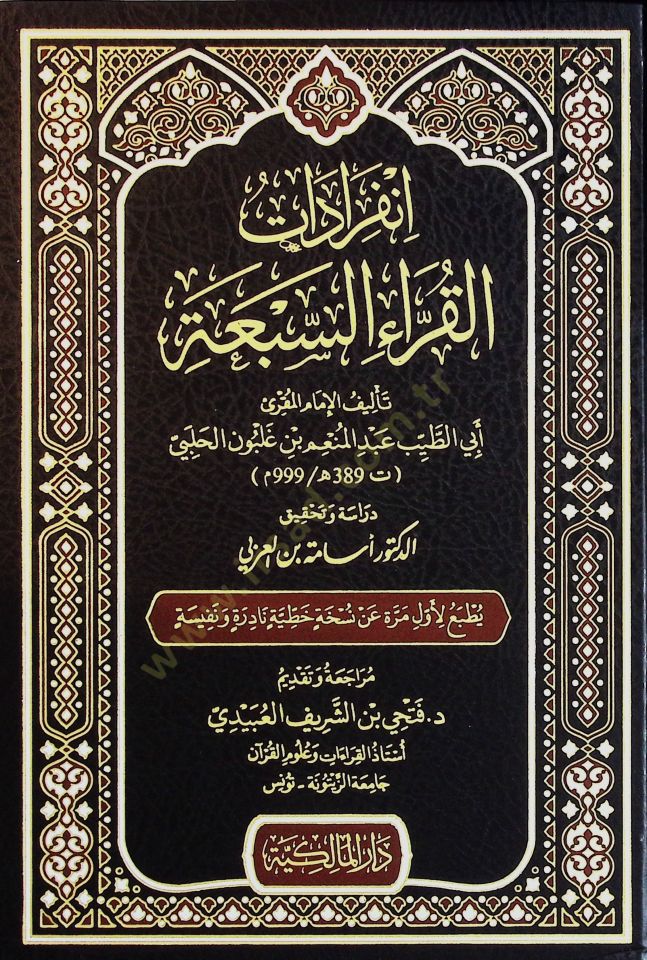 اِنْفِرَادَاتُ
القُرَّاءِ السَّبْعَةِ
تَأْلِيفُ الإِمَامِ المُقْرِئِ
أَبِي الطَّيِّبِ عَبْدِ المُنْعِمِ بْنِ غَلْبُونِ الحَلَبِيِّ
(ت 389 هـ / 999 م)
دِرَاسَة وَتَحْقِيق
الدكتور أسامة بن العربي
يُطْبَعُ لِأَوَّلِ مَرَّة عَنْ نُسْخَةٍ خَطِّيَّةٍ نَادِرَةٍ وَنَفِيسَةٍ
مُرَاجَعَةُ وَتَقْدِيمُ
د. فَتْحِي بْنِ الشَّرِيفِ العُبَيْدِيِّ
أُسْتَاذُ القِرَاءَاتِ وَعُلُومِ القُرْآنِ
جَامِعَةُ الزَّيْتُونَة - تُونِس
دَارُ المَالِكِيَّة